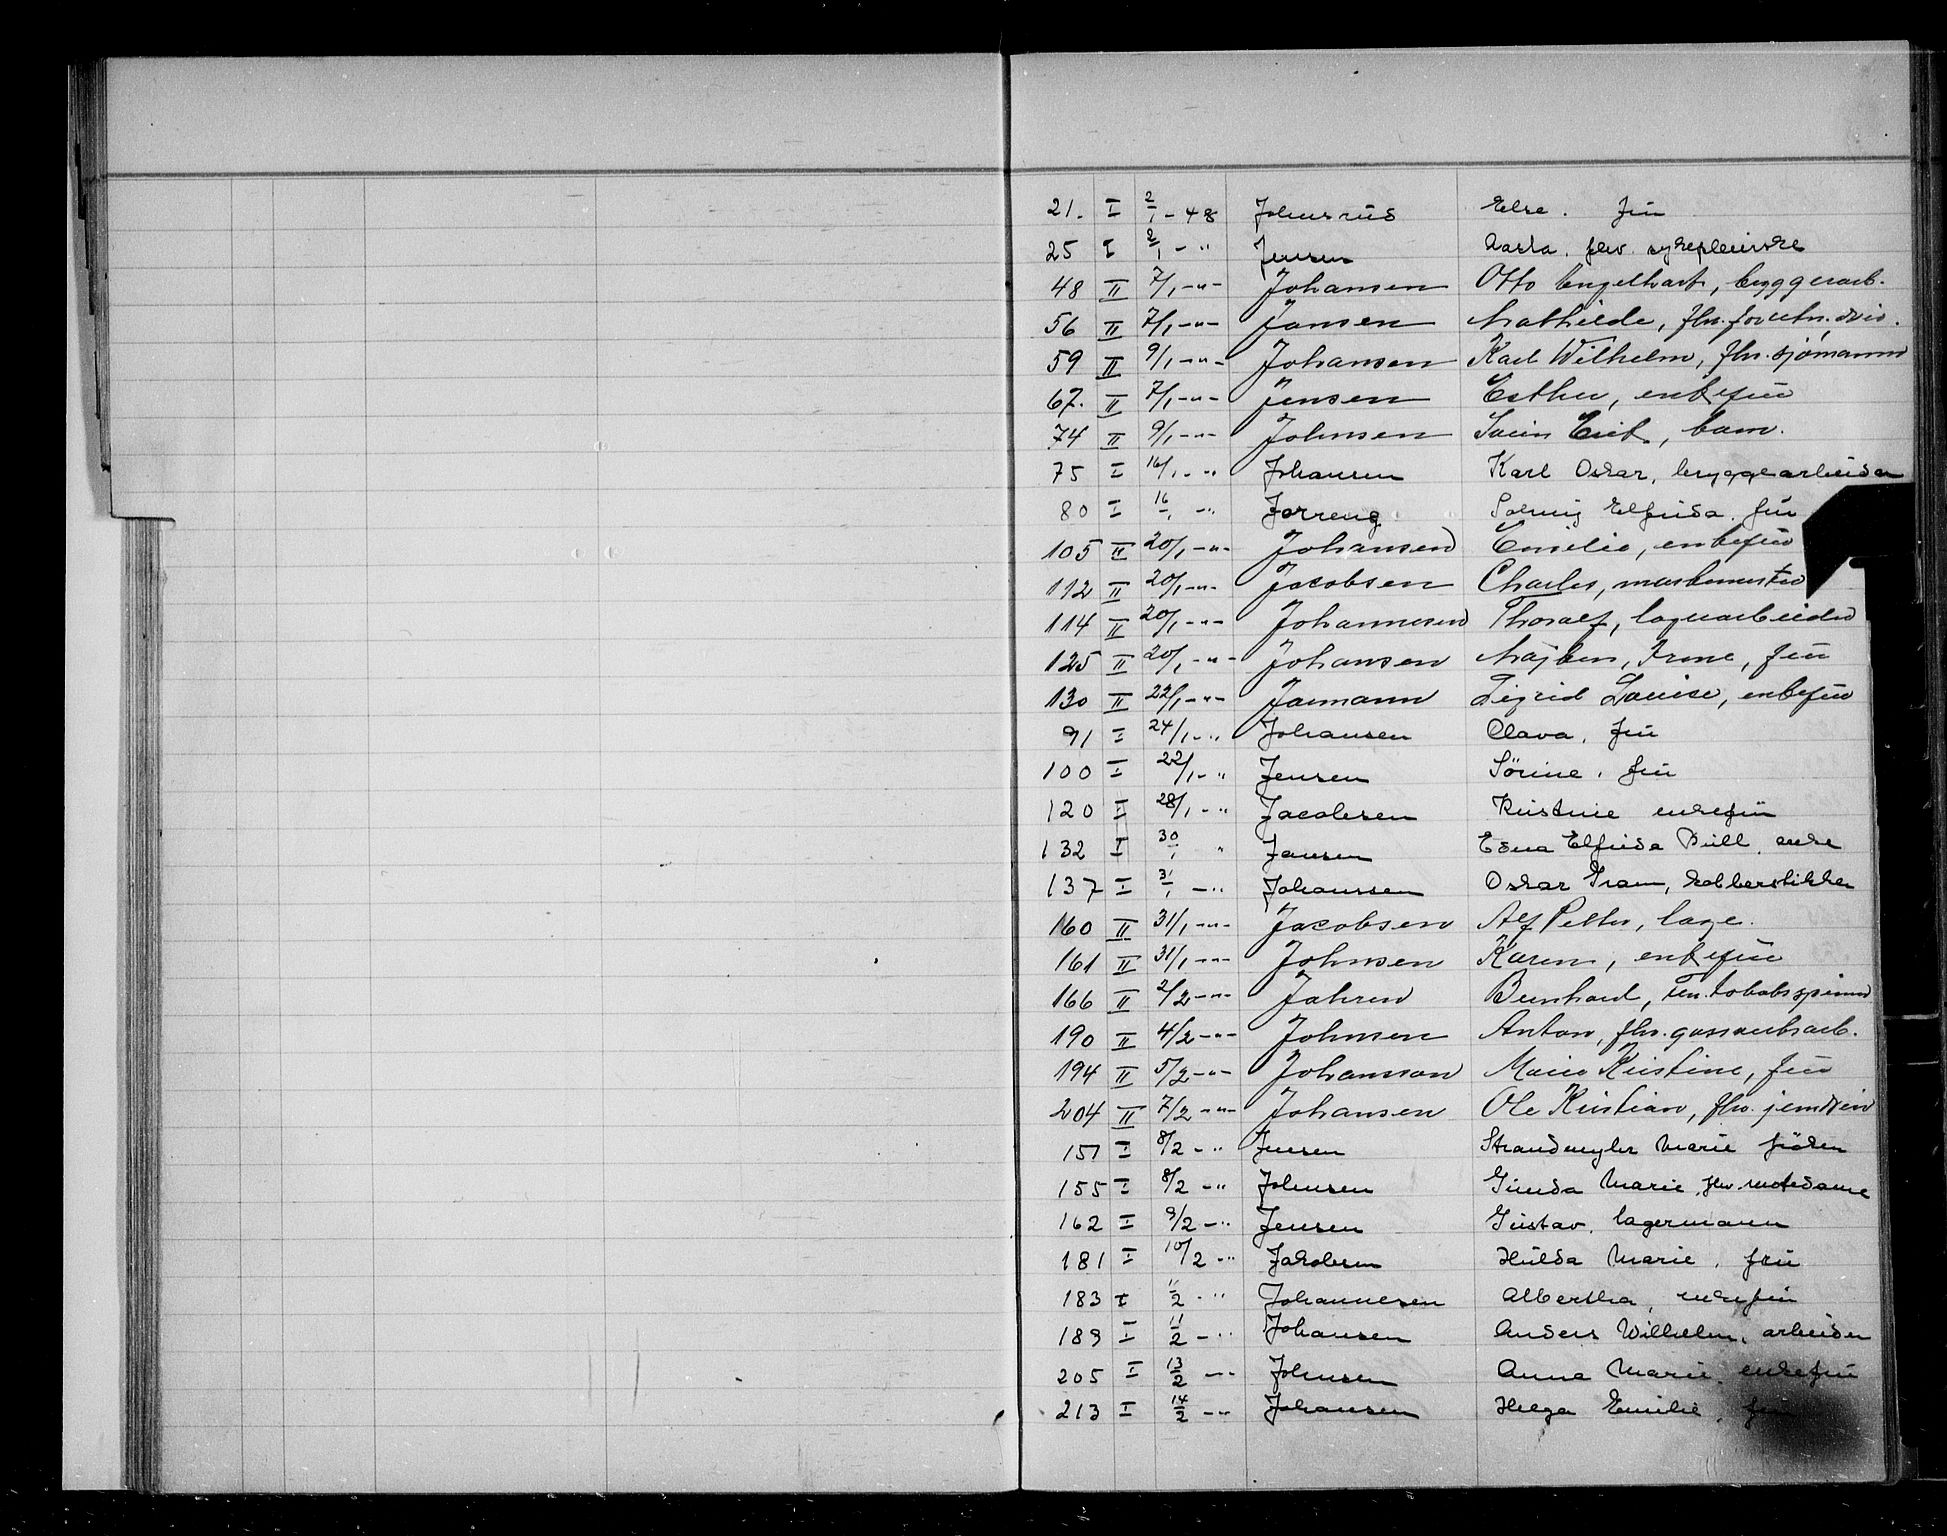 21. I 2/1 - 48 Johnsrud Else. frü
25 I 2/1 - " Jensen Aasta, fhv. sykepleierske
48 II 7/1 - " - Johansen Otto Engelhart, byggearb.
56 II 7/1 - " - Jansen Mathilde, fhv. forretn.driv.
59 II 9/1 - " - Johansen Karl Wilhelm, fhv. sjömann
67. II 7/1 - " - Jensen Esther, enkefrü
74 II 9/1 - " - Johnsen Svein Erik, barn.
75 I 16/1 - " Johansen Karl Oskar, bryggearbeider
80 I 16/1 - " Jorreng Solveig Elfrida. frü
105 II 20/1 - " - Johansen Emilie, enkefrü
112 II 20/1 - " - Jacobsen Charles, maskinmester
114 II 20/1 - " - Johannesen Thoralf, lagerarbeider
125 II 20/1 - " - Johansen Majken, Irene, frü
130 II 22/1 - " - Jarmann Sigrid Louise, enkefrü
91 I 24/1 - " Johansen Olava, frü
100 I 22/1 - " Jensen Sörine, frü
120 I 28/1 - " Jacobsen Kristine enkefrü
132 I 30/1 " Jansen Edna Elfrida Bull, enke
137 I 31/1 - " Johanssen Oskar Gram, kobberstikker
160 II 31/1 - " - Jacobsen Alf Petter, lage.
161 II 31/1 - " - Johnsen Karen, enkefrü
166 II 2/2 - " - Jahren Bernhard, fhv. tobakkspinner
190 II 4/2 - " - Johnsen Anton, fhv. gassverksarb.
194 II 5/2 - " - Johansson Marie Kristine, frü
204 II 7/2 - " - Johansen Ole Kristian, fhv. jerndreier
151 I 8/2 - " Jensen Strandmyhr Marie fröken
155 I 8/2 - " Johnsen Gunda Marie, fhv. motedame
162 I 9/2 - " Jensen Gustav, lagermann
181 I 10/2 - " Jakobsen Hulda Marie, frü
183 I 11/2 - " Johannesen Albertha, enkefrü
189 I 11/2 - " Johansen Anders Wilhelm, arbeider
205 I 13/2 - " Johnsen Anna Marie, enkefrü
213 I 14/2 - " Johansen Helga Emilie, frü